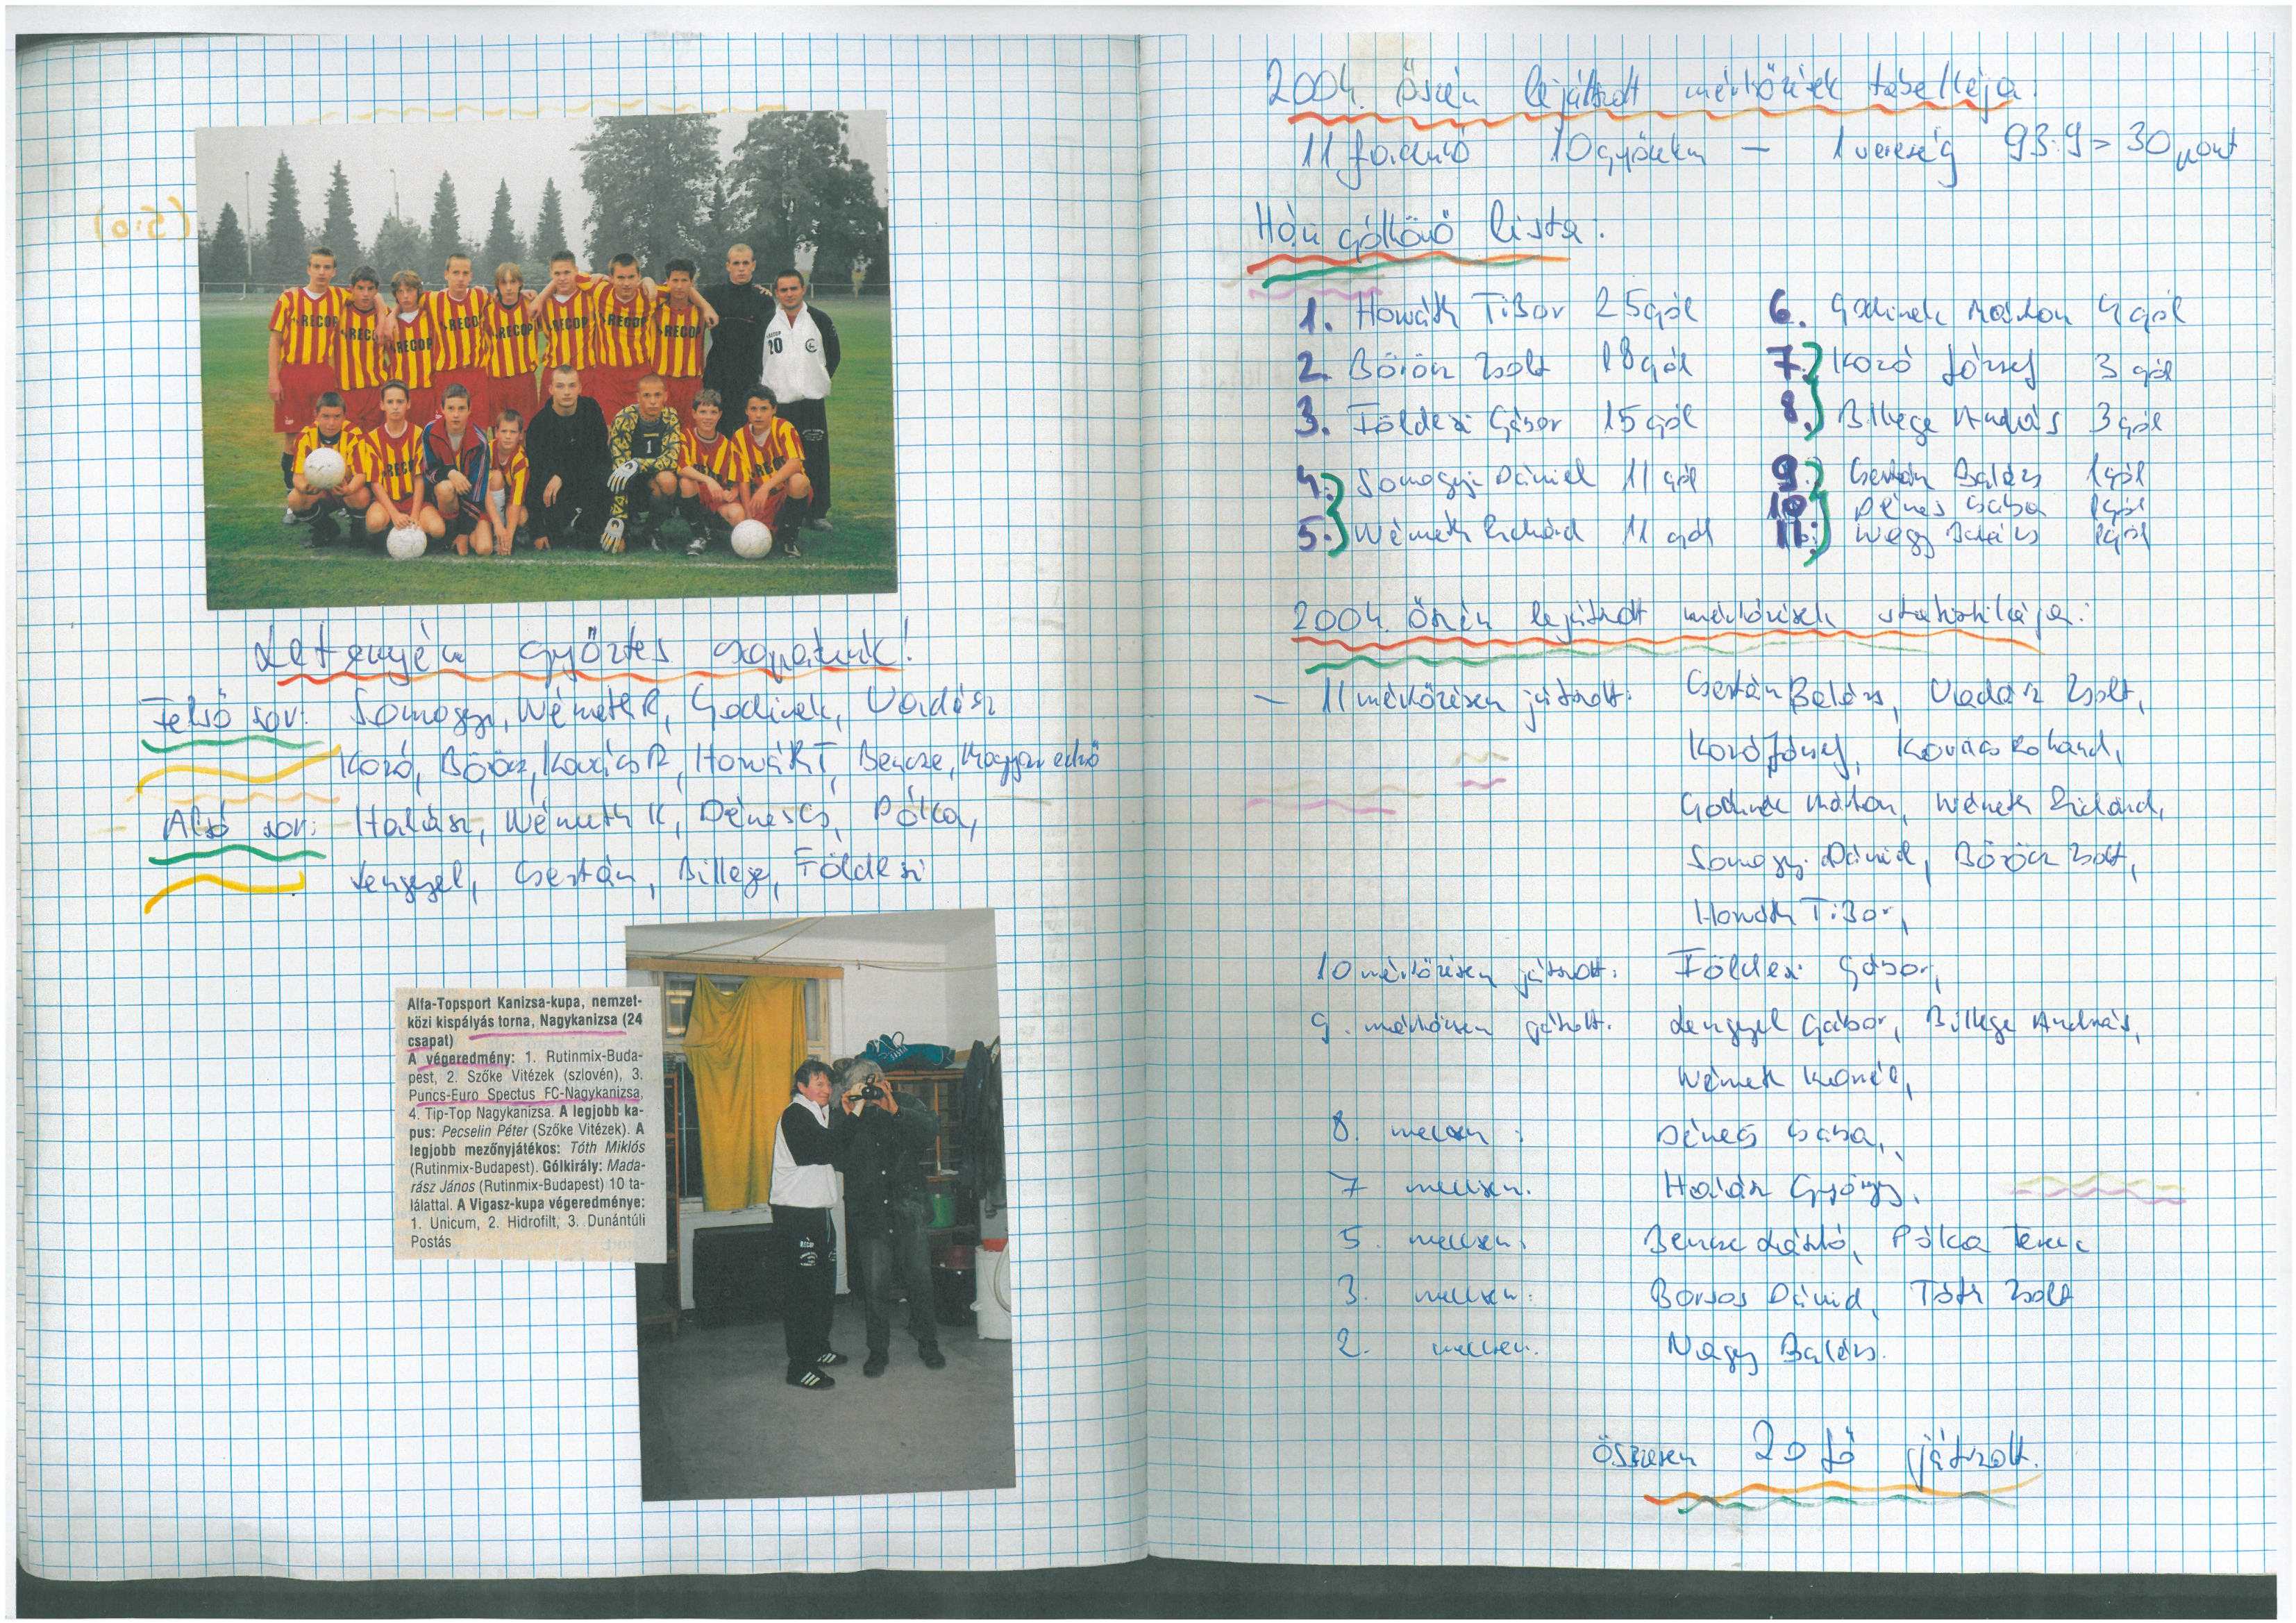 Letenyén győztes csapatunk!
Felső sor: Somogyi, Németh R, Godinek, Vadász
Kozó, Böröcz, Kovács R, Horváth T, Bencze, Magyar edző
Alsó sor: Halász, Németh K, Dénes Cs, Pólka,
Lengyel, Csertán, Billege, Földesi
Alfa-Topsport Kanizsa-kupa, nemzet-
közi kispályás torna, Nagykanizsa (24
csapat)
A végeredmény: 1. Rutinmix-Buda-
pest, 2. Szőke Vitézek (szlovén), 3.
Puncs-Euro Spectus FC-Nagykanizsa,
4. Tip-Top Nagykanizsa. A legjobb ka-
pus: Pecselin Péter (Szőke Vitézek). A
legjobb mezőnyjátékos: Tóth Miklós
(Rutinmix-Budapest). Gólkirály: Mada-
rász János (Rutinmix-Budapest) 10 ta-
lálattal. A Vigasz-kupa végeredménye:
1. Unicum, 2. Hidrofilt, 3. Dunántúli
Postás
2004. Őszén lejátszott mérkőzések tabellája:
11 forduló 10 győzelem — 1 vereség 93:9 = 30 pont
Házi góllövő lista:
1. Horváth Tibor 25 gól
2. Böröcz Zsolt 18 gól
3. Földesi Gábor 15 gól
4. Somogyi Dániel 11 gól
5. Németh Richárd 11 gól
6. Godinek Márton 4 gól
7. Kozó József 3 gól
8. Billege András 3 gól
9. Csertán Balázs 1 gól
10. Dénes Csaba 1 gól
11. Nagy Balázs 1 gól
2004. Őszén lejátszott mérkőzések statisztikája:
— 11 mérkőzésen játszott: Csertán Balázs, Vadász Zsolt,
Kozó József, Kovács Roland,
Godinek Márton, Németh Richárd,
Somogyi Dániel, Böröcz Zsolt,
Horváth Tibor,
10 mérkőzésen játszott: Földesi Gábor,
9. mérkőzésen játszott: Lengyel Gábor, Billege András,
Németh Kornél,
8. meccsen: Dénes Csaba,
7 meccsen: Halász György,
5. meccsen: Bencze László, Pólka Ferenc
3. meccsen: Borsos Dávid, Tóth Zsolt
2. meccsen: Nagy Balázs.
Összesen 20 fő játszott.
RECOP
RECOP
RECOP
RECOP
RECOP
RECOP
RECOP
RECOP
20
1
(5:0)